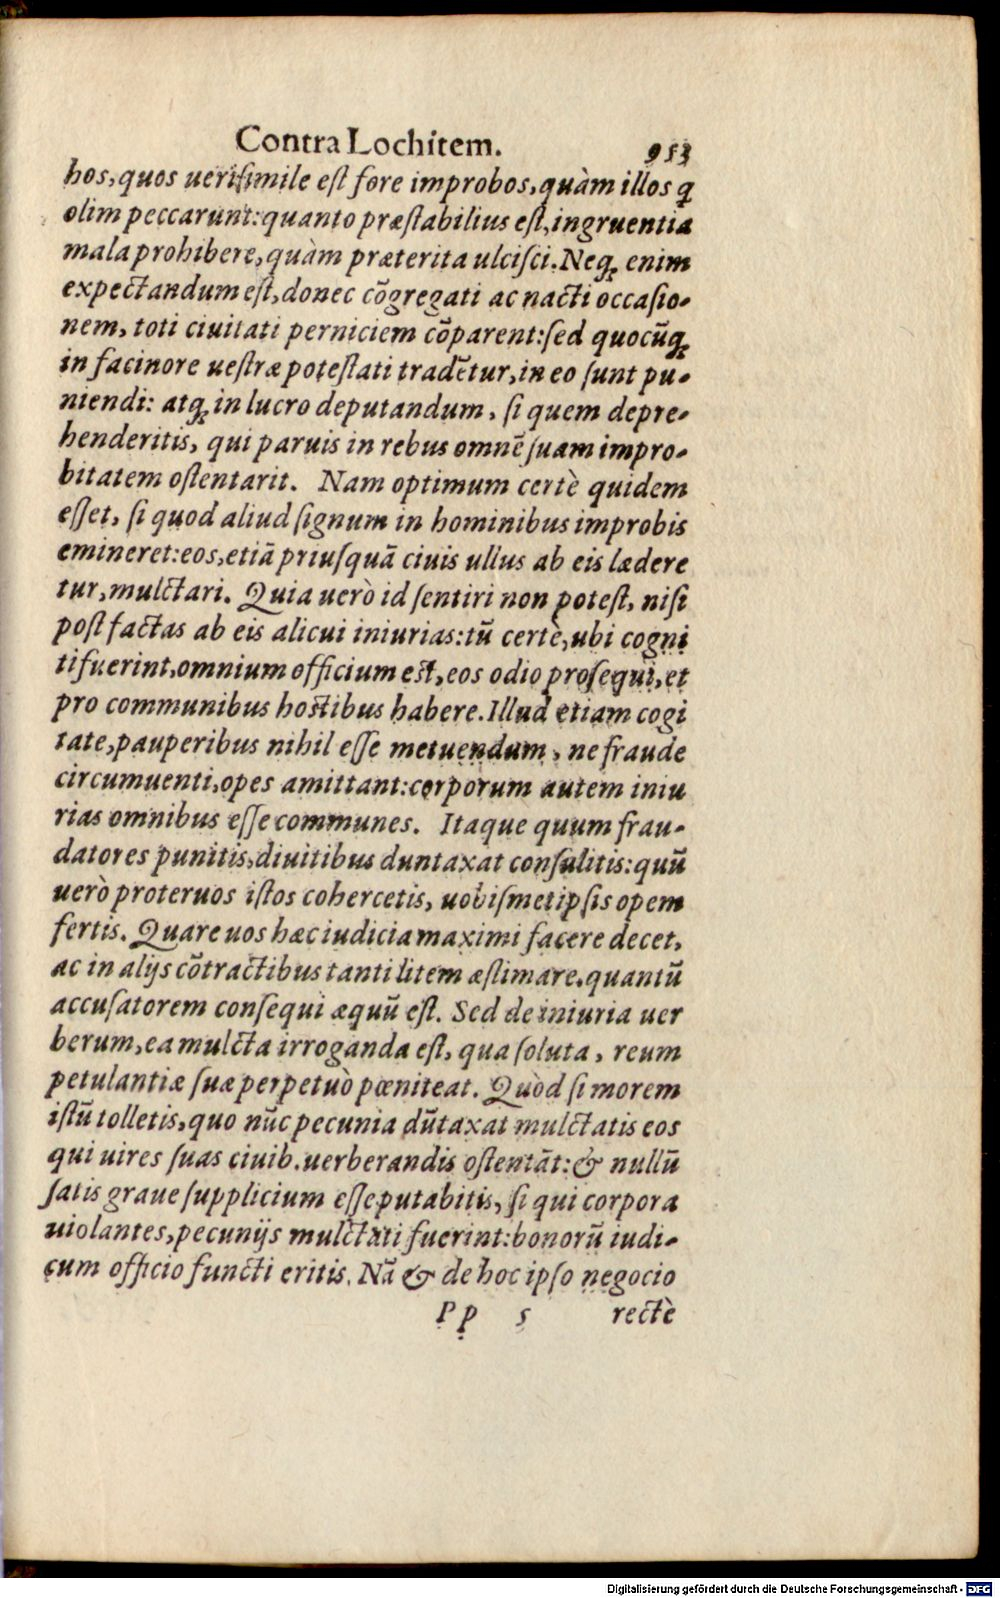 Contra Lochitem. 953
hos, quos uerisimile est fore improbos, quàm illos q̃
olim peccarunt: quanto præstabilius est, ingruentia
mala prohibere, quàm præterita ulcisci. Neqꝫ enim
expectandum est, donec cõgregati ac nacti occasio-
nem, toti ciuitati perniciem cõparent: sed quocũqꝫ
in facinore uestræ potestati tradẽtur, in eo sunt pu-
niendi: atqꝫ in lucro deputandum, si quem depre-
henderitis, qui paruis in rebus omnẽ suam impro-
bitatem ostentarit. Nam optimum certè quidem
esset, si quod aliud signum in hominibus improbis
emineret: eos, etiã priusquã ciuis ullus ab eis lædere
tur, mulctari. Quia uerò id sentiri non potest, nisi
post factas ab eis alicui iniurias: tũ certè, ubi cogni
ti fuerint, omnium officium est, eos odio prosequi, et
pro communibus hostibus habere. Illud etiam cogi
tate, pauperibus nihil esse metuendum, ne fraude
circumuenti, opes amittant: corporum autem iniu
rias omnibus esse communes. Itaque quum frau-
datores punitis, diuitibus duntaxat consulitis: quũ
uerò proteruos istos cohercetis, uobismetipsis opem
fertis. Quare uos hæc iudicia maximi facere decet,
ac in alijs cõtractibus tanti litem æstimare, quantũ
accusatorem consequi æquũ est. Sed de iniuria uer
berum, ea mulcta irroganda est, qua soluta, reum
petulantiæ suæ perpetuò pœniteat. Quòd si morem
istũ tolletis, quo nũc pecunia dũtaxat mulctatis eos
qui uires suas ciuib. uerberandis ostentãt: & nullũ
satis graue supplicium esse putabitis, si qui corpora
uiolantes, pecunijs mulctati fuerint: bonorũ iudi-
cum officio functi eritis. Nã & de hoc ipso negocio
Pp 5 rectè
Digitalisierung gefördert durch die Deutsche Forschungsgemeinschaft - DFG